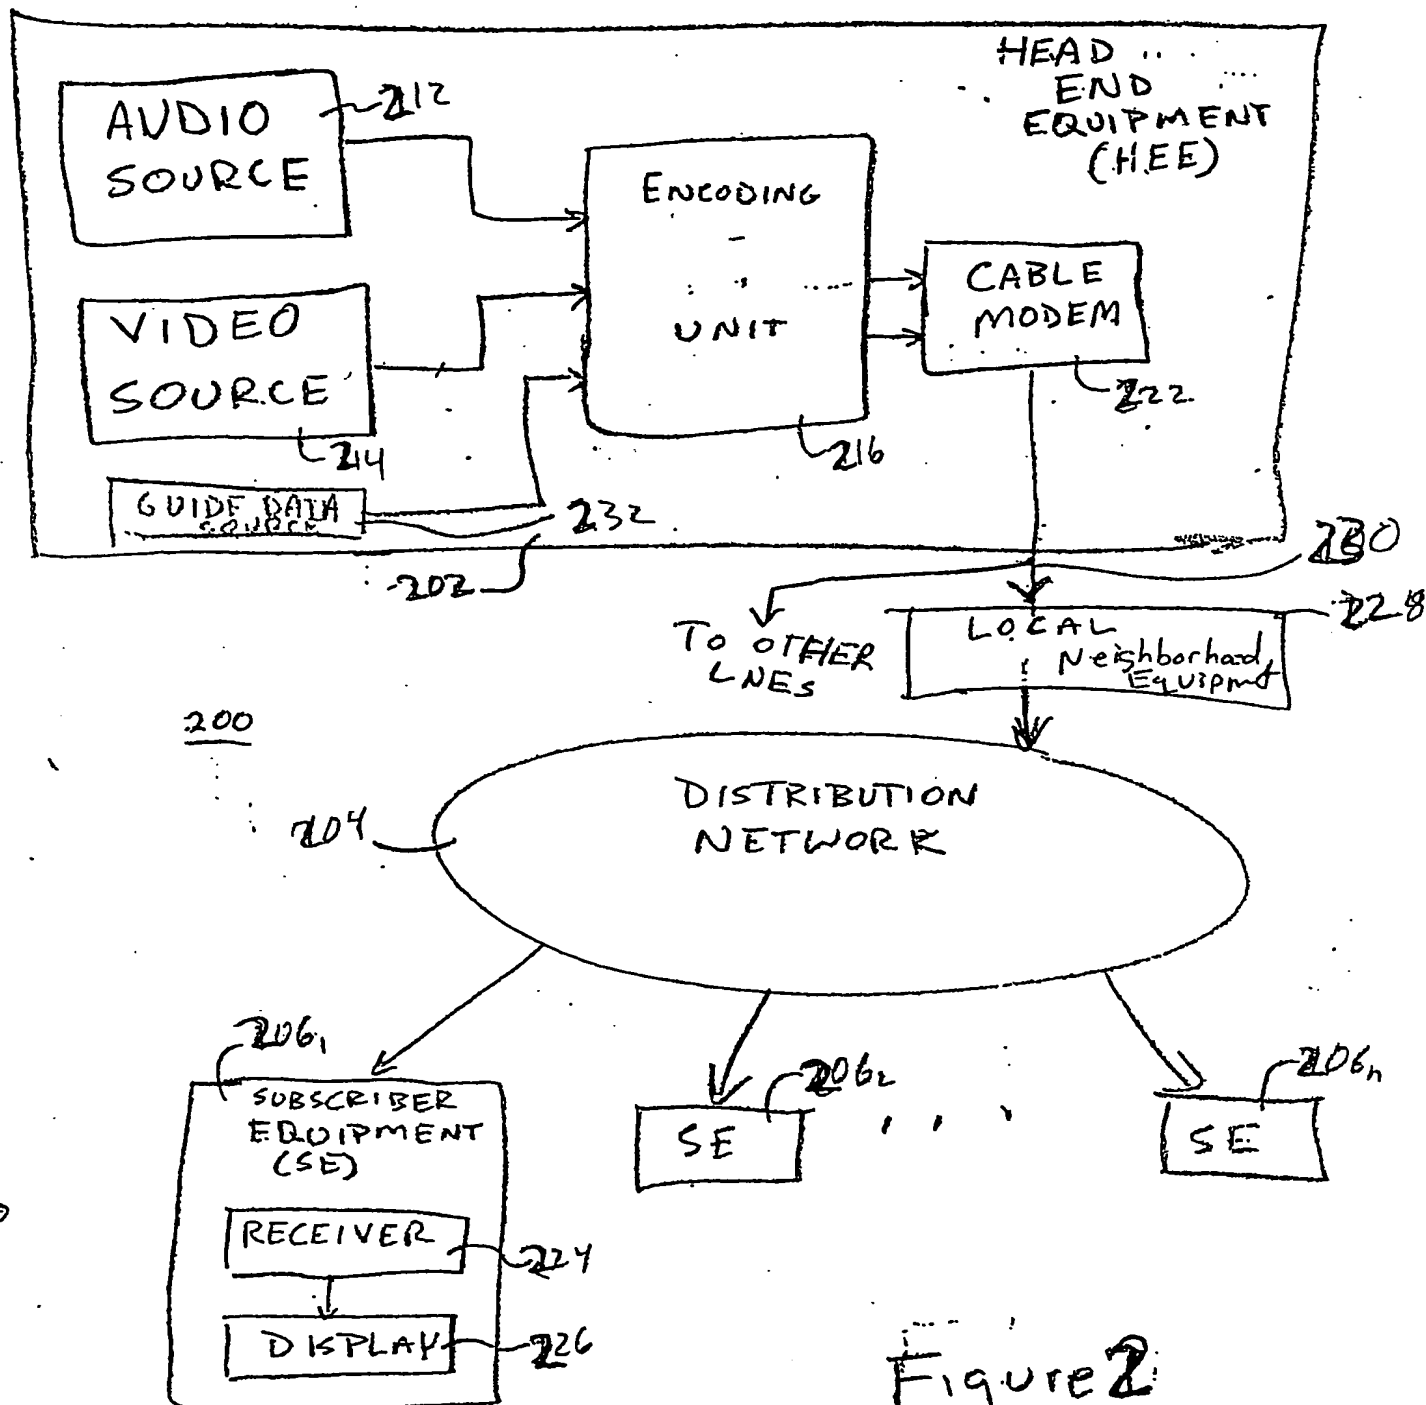 HEAD
END
EQUIPMENT
(HEE)
AUDIO
SOURCE
212
ENCODING
UNIT
216
CABLE
MODEM
222
VIDEO
SOURCE
214
GUIDE DATA
SOURCE
232
202
230
TO OTHER
LNES
LOCAL
Neighborhood
Equipmt
228
200
DISTRIBUTION
NETWORK
204
206₁
SUBSCRIBER
EQUIPMENT
(SE)
RECEIVER
224
DISPLAY
226
SE
206₂
. . .
SE
206ₙ
Figure 2